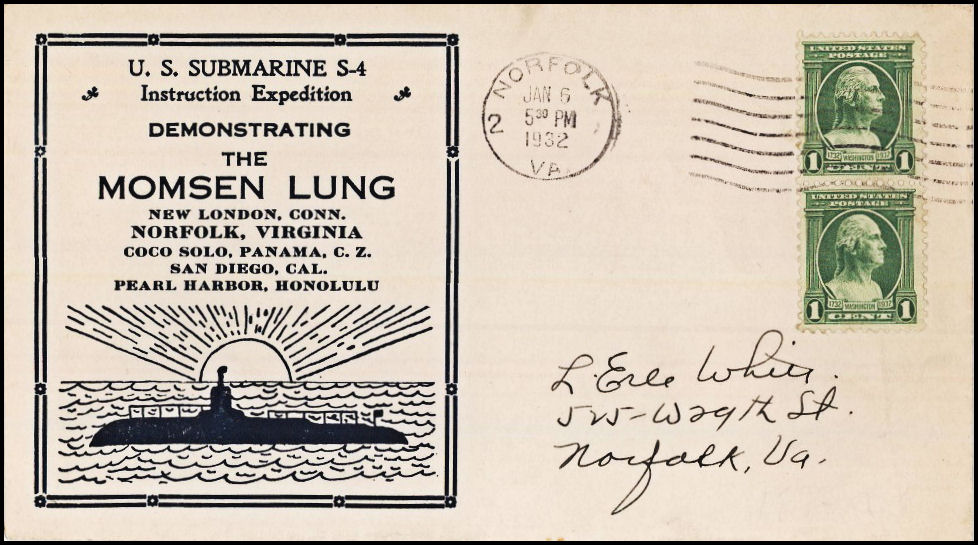 U. S. SUBMARINE S-4
Instruction Expedition
DEMONSTRATING
THE
MOMSEN LUNG
NEW LONDON, CONN.
NORFOLK, VIRGINIA
COCO SOLO, PANAMA, C. Z.
SAN DIEGO, CAL.
PEARL HARBOR, HONOLULU
NORFOLK
JAN 6
5 30 PM
2
1932
VA
UNITED STATES
POSTAGE
1732 WASHINGTON 1932
1 CENT 1
UNITED STATES
POSTAGE
1732 WASHINGTON 1932
1 CENT 1
L. Erle White.
525-W 29th St.
Norfolk, Va.